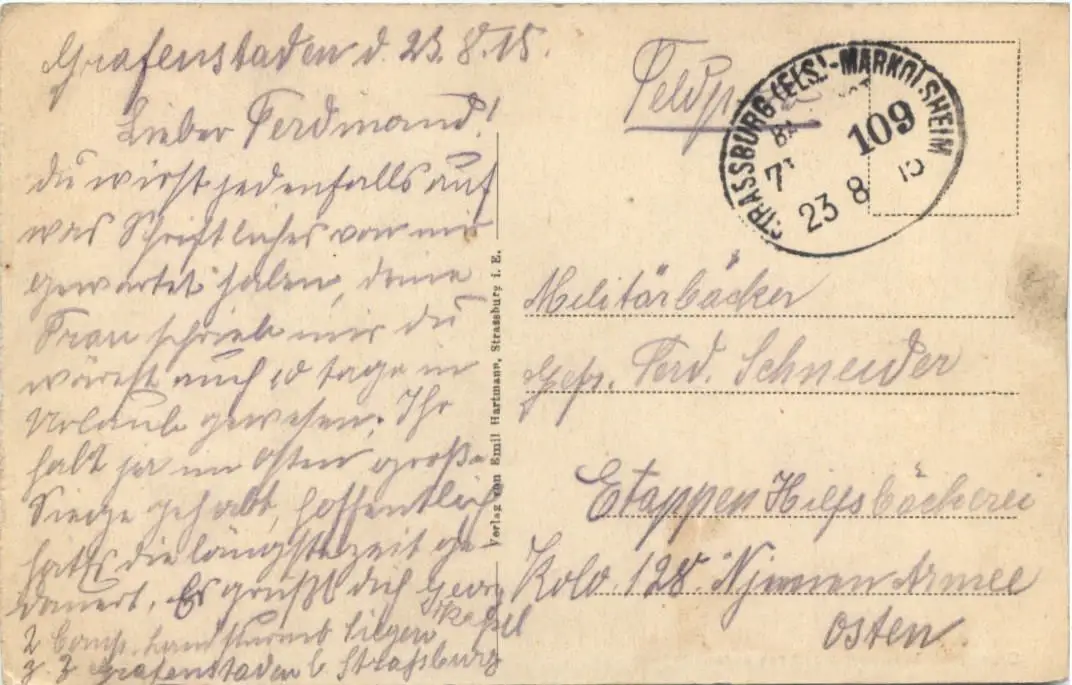 Grafenstaden d. 23.8.15.
Lieber Ferdinand!
du wirst jedenfalls auf
was Schriftliches von mir
gewartet haben, deine
Frau schrieb mir du
wärest auch 10 tage in
Urlaub gewesen. Ihr
habt ja im Osten große
Siege gehabt, hoffentlich
hat's die längste zeit ge-
dauert. Es grüßt dich Georg
2 Comp. Landsturmb Siegen
z. Z Grafenstaden b. Straßburg
Verlag von Emil Hartmann, Strassburg i. E.
Feldpost
STRASSBURG (ELS.)-MARKOLSHEIM
109
23 8 15
Militärbäcker
Gefr. Ferd. Schneider
Etappen Hilfsbäckerei
Kolo. 128. Njemen Armee
Osten.